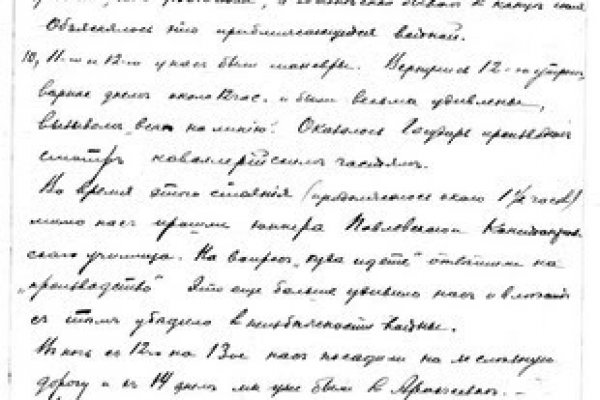 Объяснялось это приближающейся войной.
10, 11-го и 12-го у нас были маневры. Вернулись 12-го утром,
вернее днем около 12 час. и были весьма удивлены,
вызовом „всех на линию". Оказалось Государь производил
смотр кавалерийским частям.
Во время этого стояния (продолжалось около 1½ часов)
мимо нас прошли юнкера Павловского
ского училища. На вопрос „куда идете" ответили на
„производство" Это еще больше удивило нас и
с тем убедило в неизбежности войны.
В ночь с 12го на 13ое нас посадили на железную
дорогу и к 14 днем мы уже были в